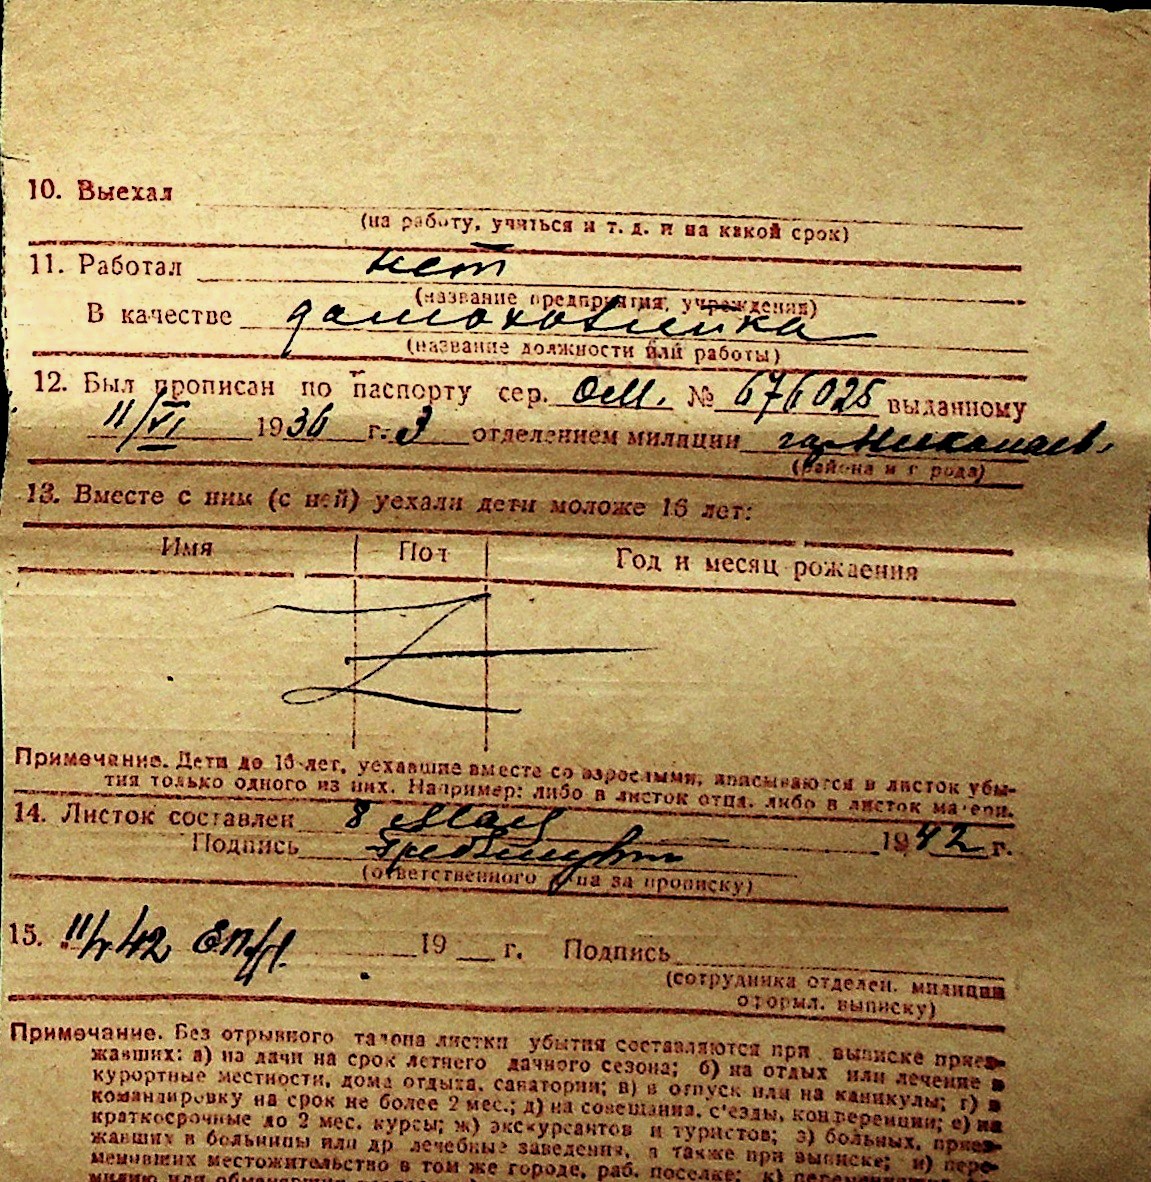 10. Выехал
(на работу, учиться и т. д. и на какой срок)
11. Работал нет
(название предприятия, учреждения)
В качестве домохозяйка
(название должности или работы)
12. Был прописан по паспорту сер. ОМ. № 676025 выданному
11/VI 1936 г. 3 отделением милиции гор. Николаев.
(района и города)
13. Вместе с ним (с ней) уехали дети моложе 16 лет:
Имя Пол Год и месяц рождения
Примечание. Дети до 16 лет, уехавшие вместе со взрослыми, вписываются в листок убы-
тия только одного из них. Например: либо в листок отца, либо в листок матери.
14. Листок составлен 8 Мая 1942 г.
Подпись
(ответственного лица за прописку)
15. 11/V 42 19 г. Подпись
(сотрудника отделен. милиции
оформл. выписку)
Примечание. Без отрывного талона листки убытия составляются при выписке приез-
жавших: а) на дачи на срок летнего дачного сезона; б) на отдых или лечение в
курортные местности, дома отдыха, санатории; в) в отпуск или на каникулы; г) в
командировку на срок не более 2 мес.; д) на совещания, с'езды, конференции; е) на
краткосрочные до 2 мес. курсы; ж) экскурсантов и туристов; з) больных, приез-
жавших в больницы или др лечебные заведения, а также при выписке; и) пере-
менивших местожительство в том же городе, раб. поселке; к)